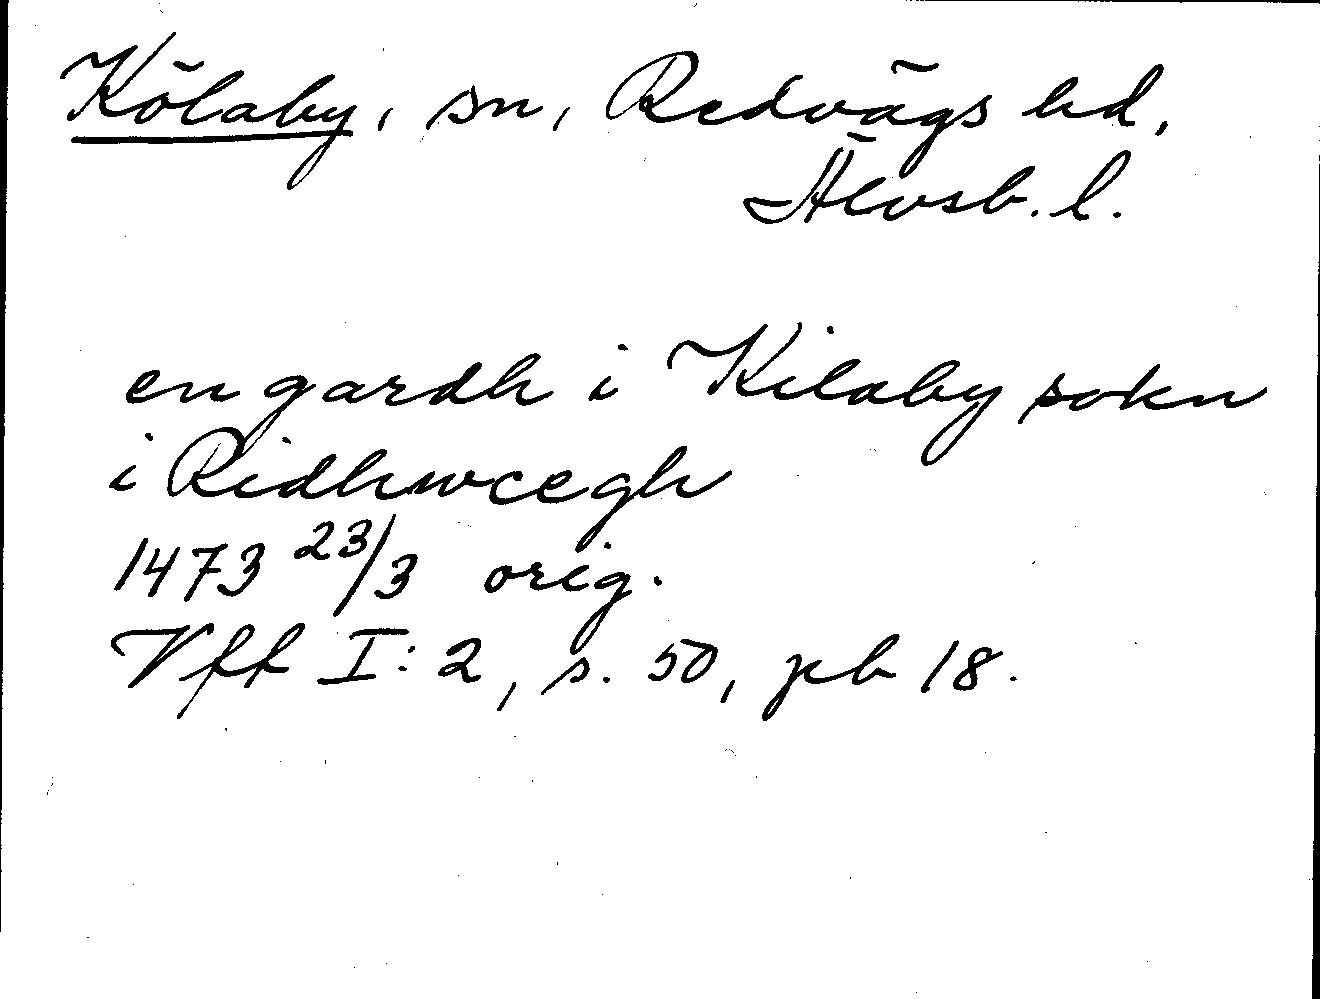 Kölaby, sn, Redvägs hd,
Älvsb. l.
en gardh i Kilaby sokn
i Ridhwægh
1473 23/3 orig.
Vff I:2, s. 50, pb 18.